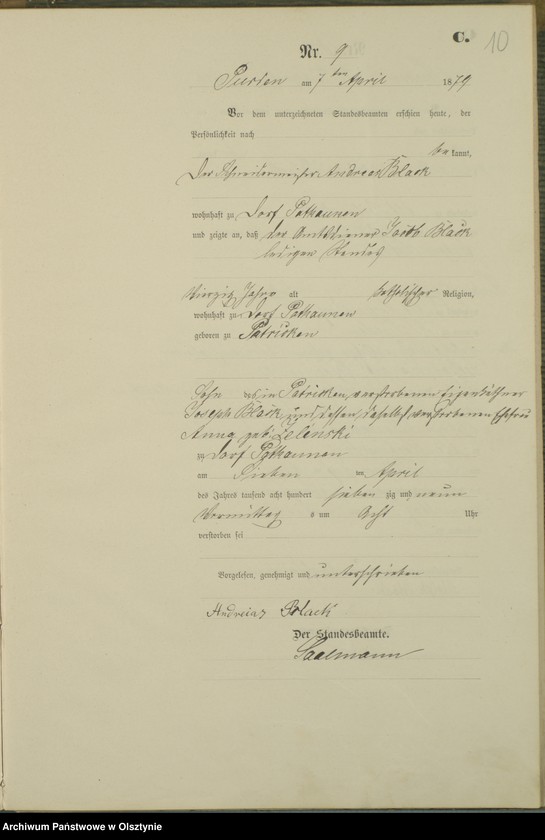 C.
10
Nr. 9
Purden am 7ten April 1879
Vor dem unterzeichneten Standesbeamten erschien heute, der
Persönlichkeit nach
be kannt,
der Schneidermeister Andreas Black
wohnhaft zu Dorf Pathaunen
und zeigte an, daß der Amtsdiener Jacob Black
ledigen Standes
Vierzig Jahre alt katholischer Religion,
wohnhaft zu Dorf Pathaunen
geboren zu Patricken
Sohn des in Patricken verstorbenen Eigenkäthner
Joseph Black und dessen daselbst verstorbenen Ehefrau
Anna geb. Zelenski
zu Dorf Pathaunen
am Sieben ten April
des Jahres tausend acht hundert sieben zig und neun
Vormittag s um Acht Uhr
verstorben sei
Vorgelesen, genehmigt und unterschrieben
Andreas Black
Der Standesbeamte.
Saalmann
Archiwum Państwowe w Olsztynie